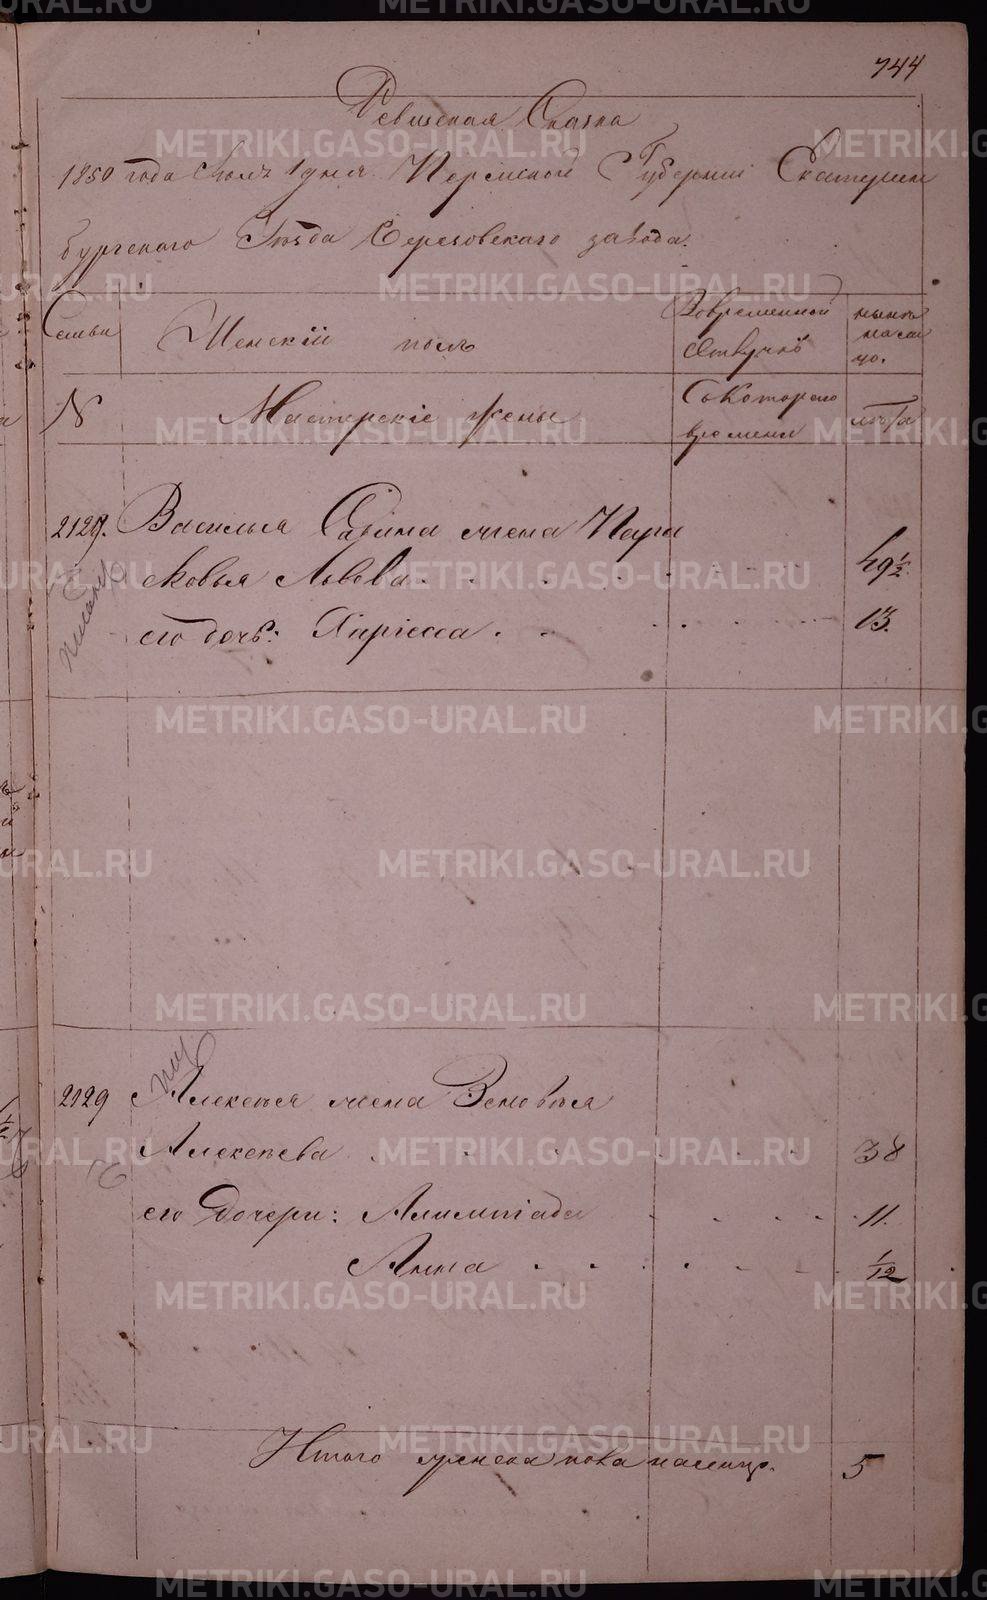 744
Ревизская Сказка
1850 года Июль 1 дня Пермской Губернии Екатерин
бургского Уезда Березовского завода.
Семьи Женский полъ Вовременной Отлучкѣ нынѣ на ли цо.
N Мастерскіе жены Съ Котораго времени лѣта
2128. Василья Савина жена Пара
сковья Львова 49 1/2
его дочь: Лариса 13.
2129 Алексѣя жена Зеновья
Алексѣева 38
его дочери: Алимпіада 11.
Анна 1/12
Итого женска пола налицо. 5
METRIKI.GASO-URAL.RU